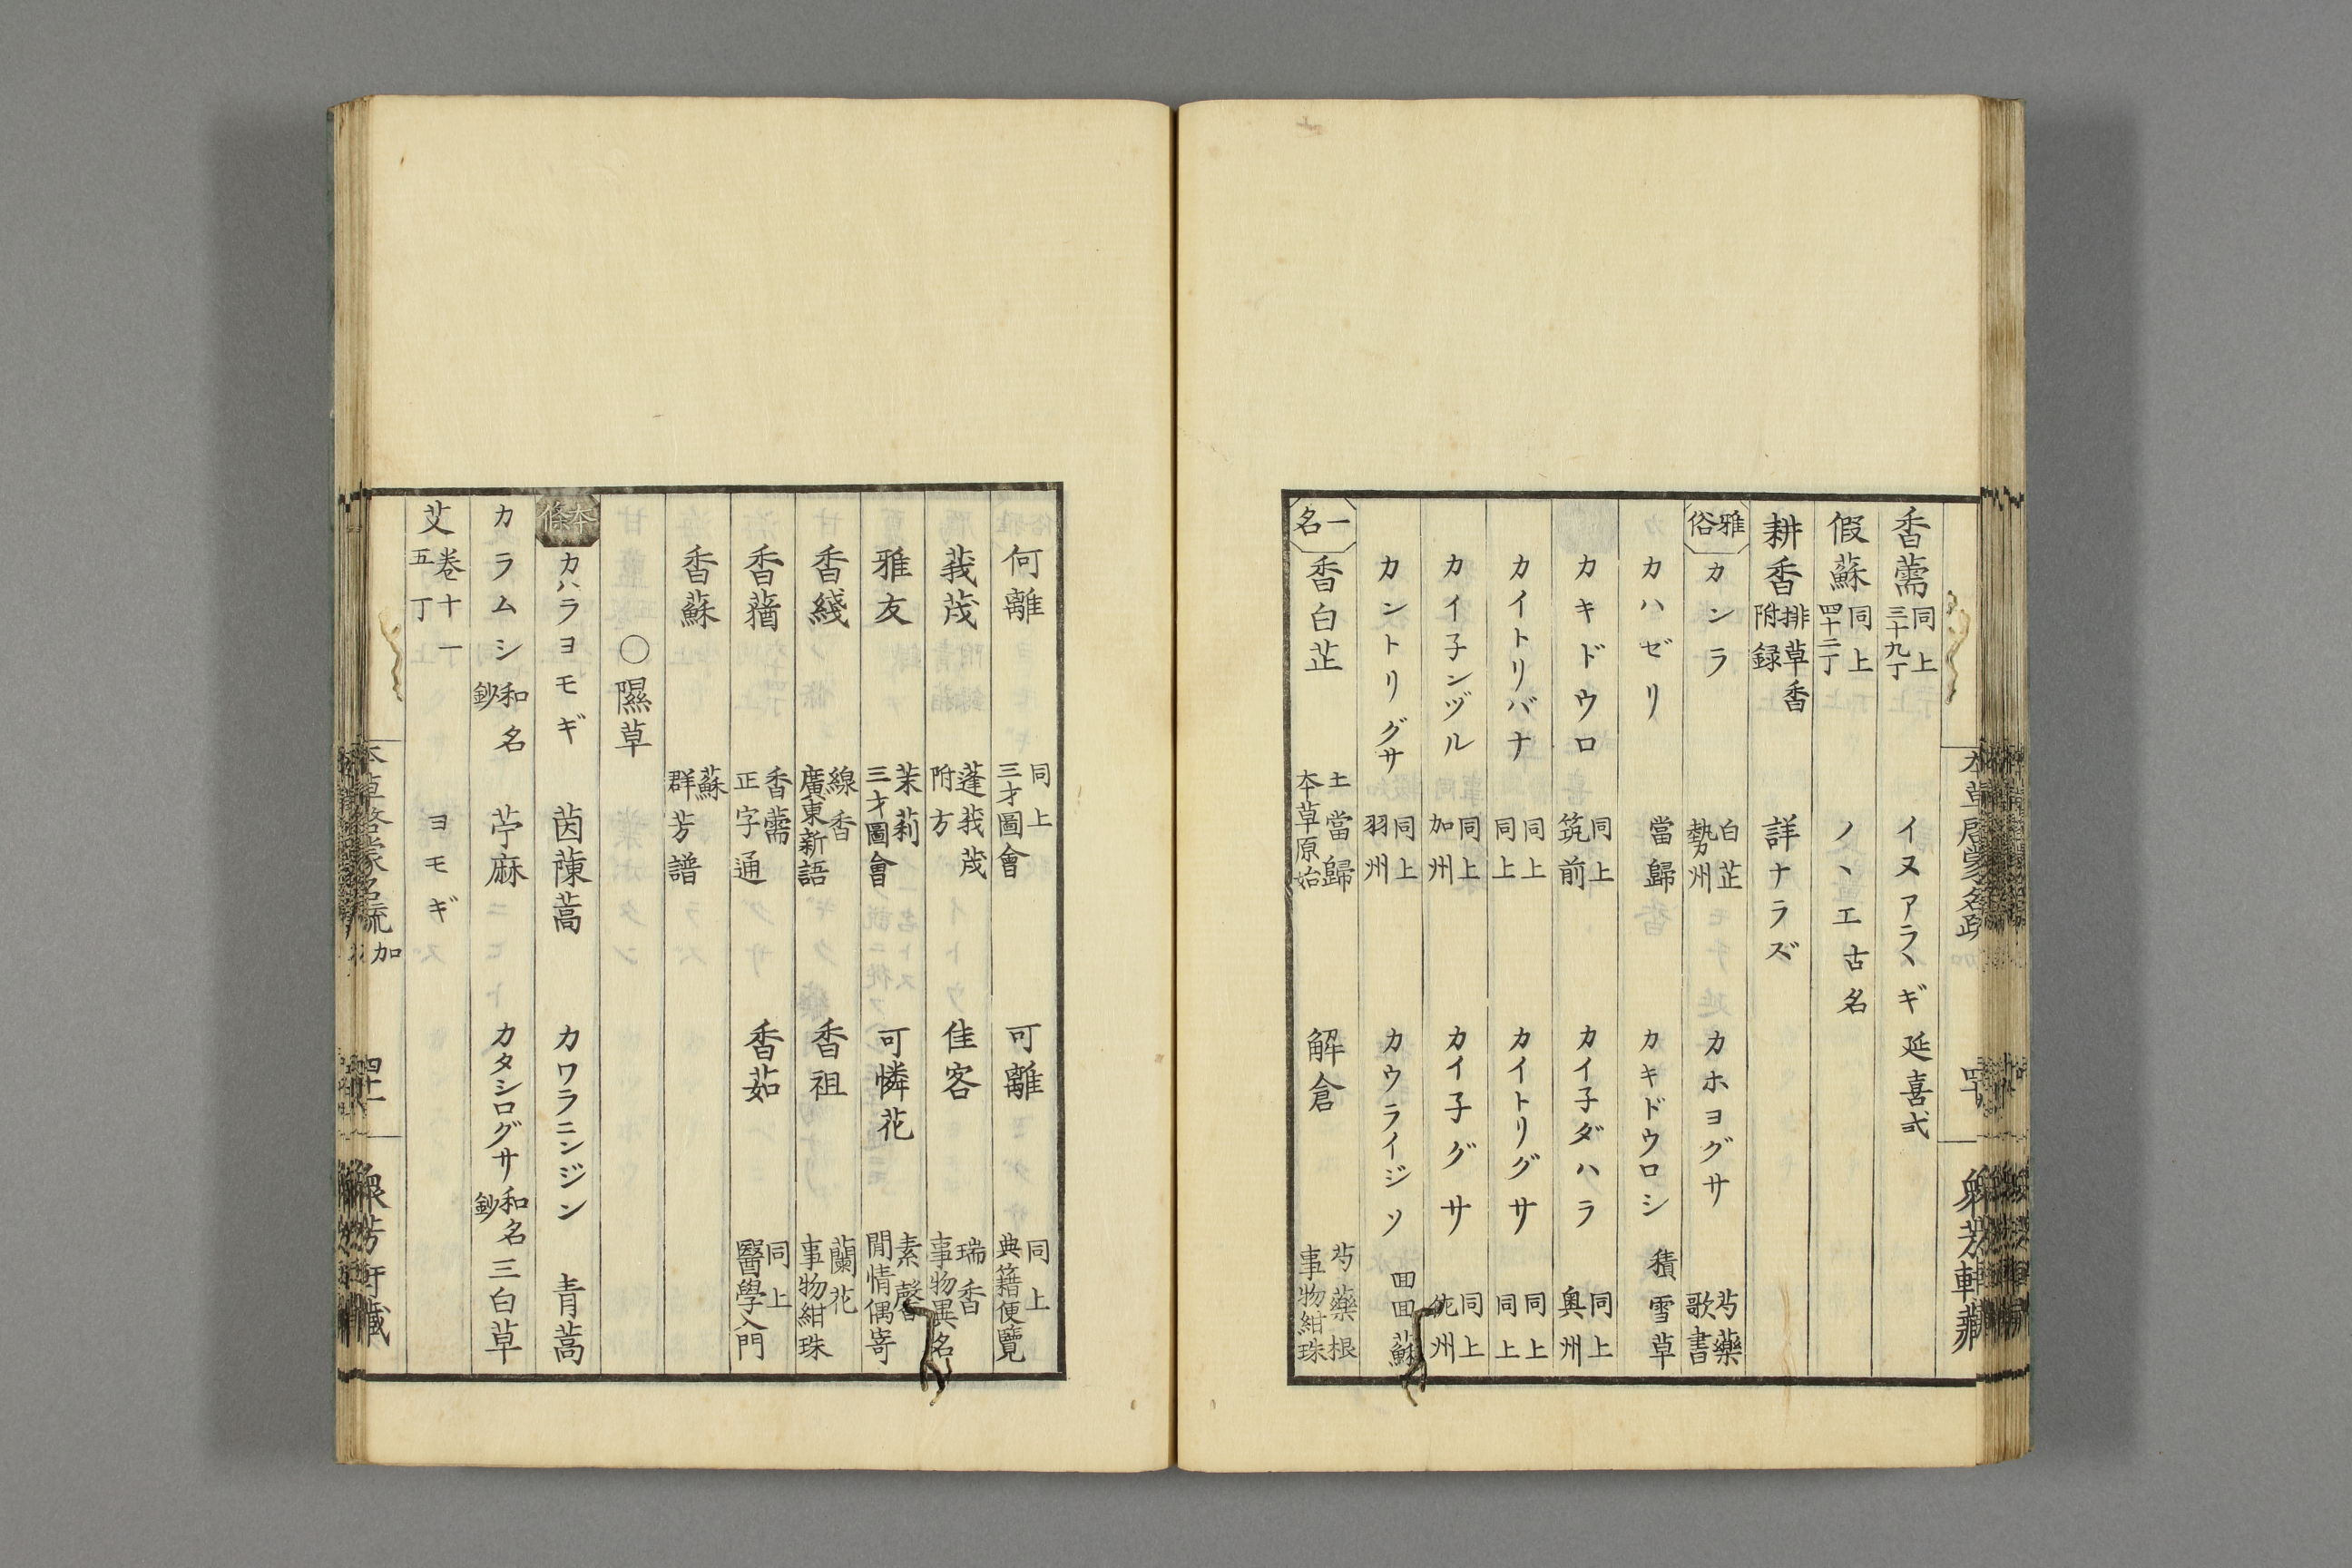 香薷 同上 三十九丁 イヌアラヽギ 延喜式
假蘇 同上 四十二丁 ノヽエ 古名
耕香 排草香 附録 詳ナラズ
雅俗 カンラ 白芷 勢州 カホヨグサ 芍藥 歌書
カハゼリ 當歸 カキドウロシ 積雪草
カキドウロ 同上 筑前 カイ子ダハラ 同上 奥州
カイトリバナ 同上 同上 カイトリグサ 同上 同上
カイ子ンヅル 同上 加州 カイ子グサ 同上 佐州
カントリグサ 同上 羽州 カウライジソ 回回蘇
一名 香白芷 土當歸 本草原始 解倉 芍藥根 事物紺珠
何離 同上 三才圖會 可離 同上 典籍便覽
莪茂 蓬莪茂 附方 佳客 瑞香 事物異名
雅友 茉莉 三才圖會 可憐花 素馨 閒情偶寄
香綫 線香 廣東新語 香祖 蘭花 事物紺珠
香蕕 香薷 正字通 香茹 同上 醫學入門
香蘇 蘇 群芳譜
〇隰草
本條 カハラヨモギ 茵蔯蒿 カワラニンジン 青蒿
カラムシ 和名鈔 苧麻 カタシログサ 和名鈔 三白草
艾 卷十一 五丁 ヨモギ
本草啓蒙名疏 加 四十一 衆芳軒藏